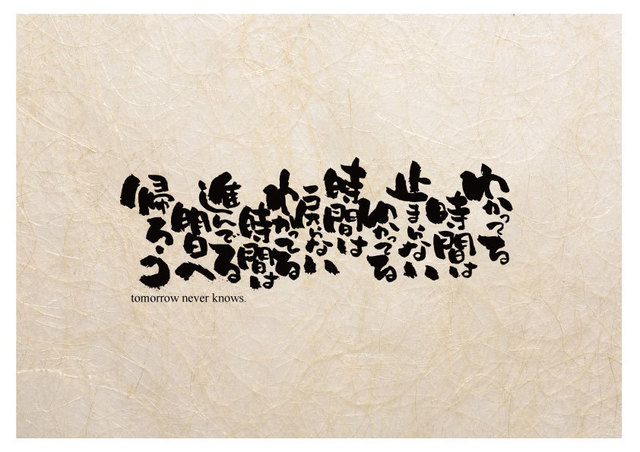 わかってる
時間は
止まんない
わかってる
時間は
戻んない
わかってる
時間は
進んでる
明日へ
帰ろう
tomorrow never knows.